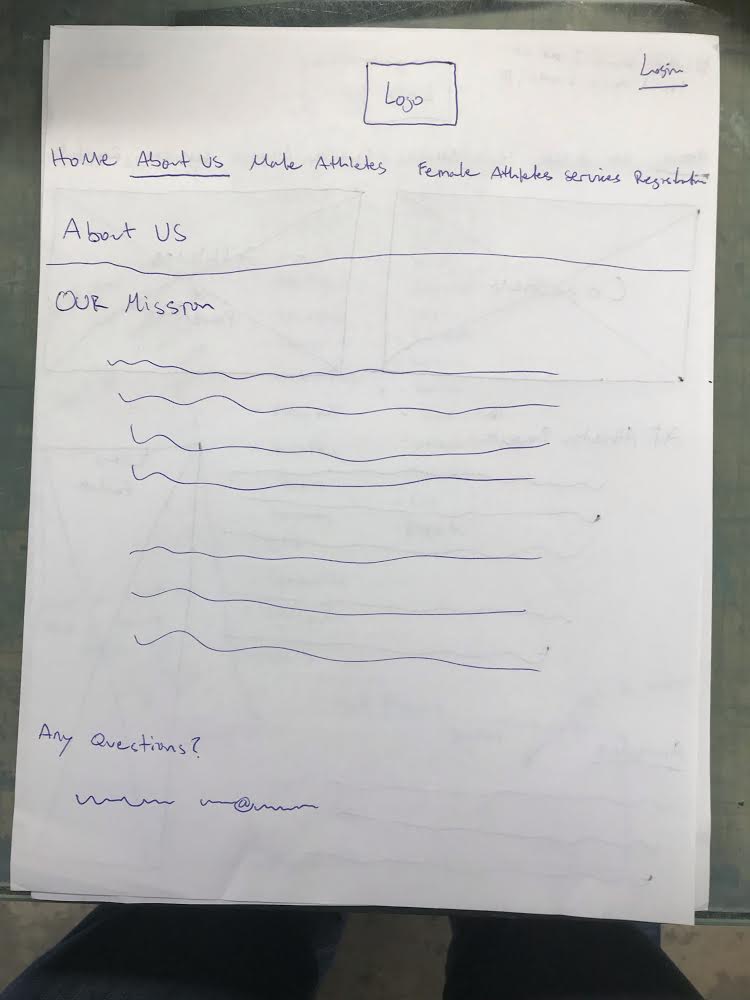 Login
Logo
HoMe About US Male Athletes Female Athletes Services Registration
About US
OUR Mission
Any Questions?
@